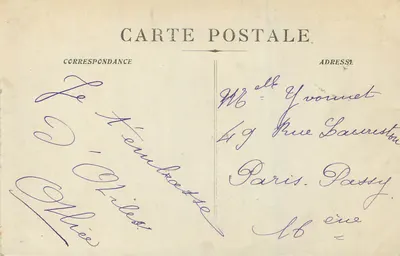 CARTE POSTALE
CORRESPONDANCE
Je t'embrasse
Alice
ADRESSE
Melle Yvonnet
49 Rue Lauriston
Paris. Passy.
16 ème